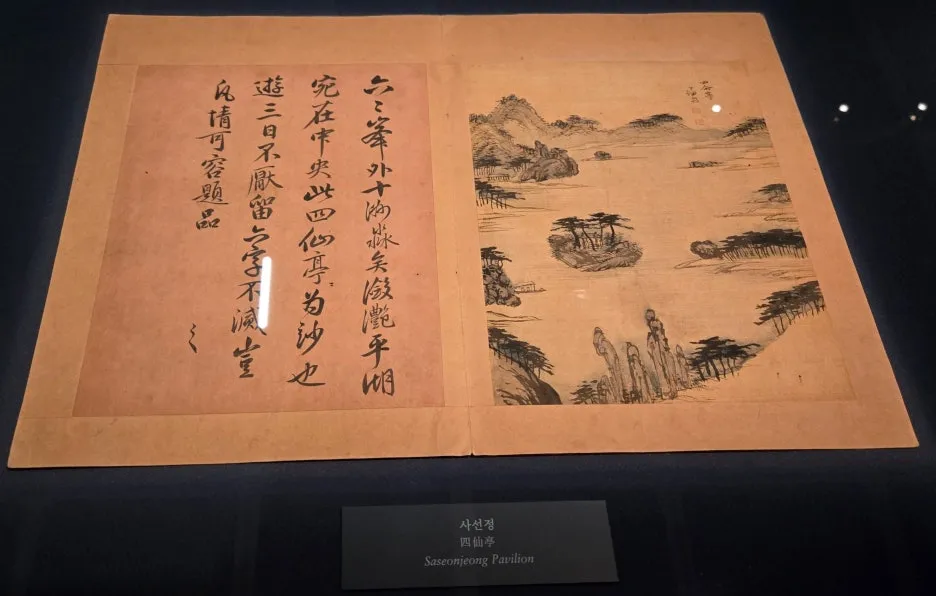 六〻峯外十洲淼矣瀲灧平湖
宛在中央此四仙亭为妙也
遊三日不厭留六字不滅豈
凡情可容題品
四仙亭
謙齋
사선정
四仙亭
Saseonjeong Pavilion